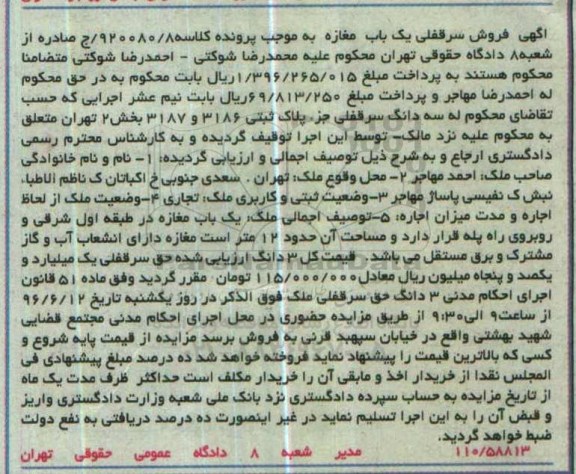 آگهی فروش سرقفلی یک باب مغازه به موجب پرونده کلاسه۹۲۰۰۸۰/۸/ج صادره از
شعبه۸ دادگاه حقوقی تهران محکوم علیه محمدرضا شوکتی - احمدرضا شوکتی متضامنا
محکوم هستند به پرداخت مبلغ ۱/۳۹۶/۲۶۵/۰۱۵ریال بابت محکوم به در حق محکوم
له احمدرضا مهاجر و پرداخت مبلغ ۶۹/۸۱۳/۲۵۰ریال بابت نیم عشر اجرایی که حسب
تقاضای محکوم له سه دانگ سرقفلی جز. پلاک ثبتی ۳۱۸۶ و ۳۱۸۷ بخش۲ تهران متعلق
به محکوم علیه نزد مالک- توسط این اجرا توقیف گردیده و به کارشناس محترم رسمی
دادگستری ارجاع و به شرح ذیل توصیف اجمالی و ارزیابی گردیده: ۱- نام و نام خانوادگی
صاحب ملک: احمد مهاجر ۲- محل وقوع ملک: تهران . سعدی جنوبی خ اکباتان ک ناظم الاطباء
نبش ک نفیسی پاساژ مهاجر ۳-وضعیت ثبتی و کاربری ملک: تجاری ۴-وضعیت ملک از لحاظ
اجاره و مدت میزان اجاره: ۵-توصیف اجمالی ملک: یک باب مغازه در طبقه اول شرقی و
روبروی راه پله قرار دارد و مساحت آن حدود ۱۲ متر است مغازه دارای انشعاب آب و گاز
مشترک و برق مستقل می باشد . قیمت کل ۳ دانگ ارزیابی شده حق سرقفلی یک میلیارد و
یکصد و پنجاه میلیون ریال معادل۱۱۵/۰۰۰/۰۰۰ تومان مقرر گردید وفق ماده ۵۱ قانون
اجرای احکام مدنی ۳ دانگ حق سرقفلی ملک فوق الذکر در روز یکشنبه تاریخ ۹۶/۶/۱۲
از ساعت۹ الی۹:۳۰ از طریق مزایده حضوری در محل اجرای احکام مدنی مجتمع قضایی
شهید بهشتی واقع در خیابان سپهبد قرنی به فروش برسد مزایده از قیمت پایه شروع و
کسی که بالاترین قیمت را پیشنهاد نماید فروخته خواهد شد ده درصد مبلغ پیشنهادی فی
المجلس نقدا از خریدار اخذ و مابقی آن را خریدار مکلف است حداکثر ظرف مدت یک ماه
از تاریخ مزایده به حساب سپرده دادگستری نزد بانک ملی شعبه وزارت دادگستری واریز
و قبض آن را به این اجرا تسلیم نماید در غیر اینصورت ده درصد دریافتی به نفع دولت
ضبط خواهد گردید.
۱۱۰/۵۸۸۱۳ مدیر شعبه ۸ دادگاه عمومی حقوقی تهران